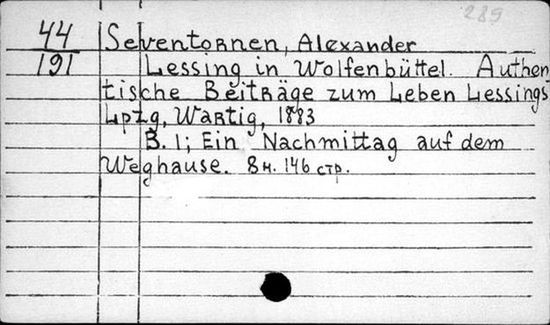 289
44 Seventornen, Alexander
191 Lessing in Wolfenbüttel. Authen
tische Beiträge zum Leben Lessings
Lpzg, Wartig, 1883
B. 1; Ein Nachmittag auf dem
Weghause. 8н. 146 стр.